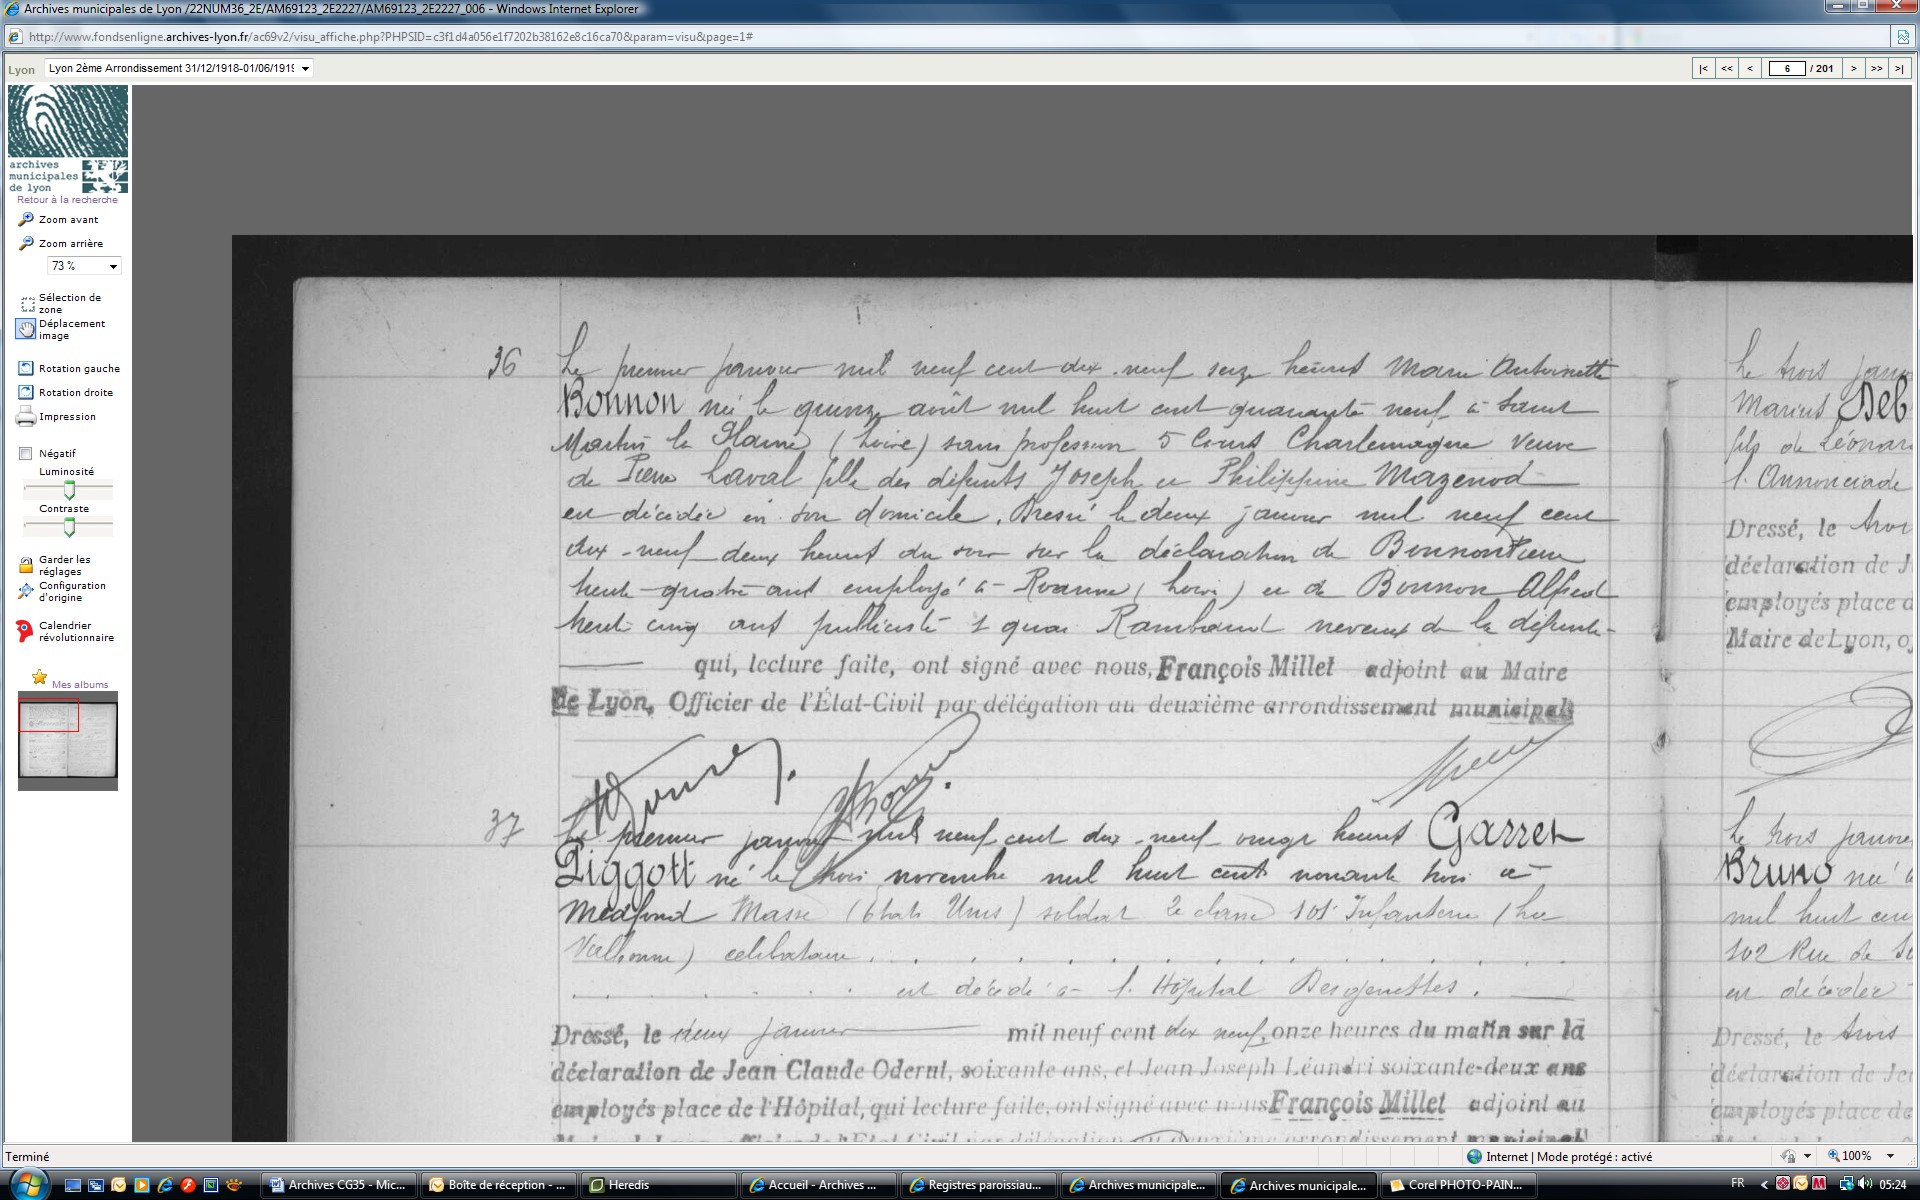 Archives municipales de Lyon /22NUM36_2E/AM69123_2E2227/AM69123_2E2227_006 - Windows Internet Explorer
http://www.fondsenligne.archives-lyon.fr/ac69v2/visu_affiche.php?PHPSID=c3f1d4a056e1f7202b38162e8c16ca70&param=visu&page=1#
Lyon
Lyon 2ème Arrondissement 31/12/1918-01/06/1919
|<
<<
<
6
/ 201
>
>>
>|
archives
municipales
de lyon
Retour à la recherche
Zoom avant
Zoom arrière
73 %
Sélection de
zone
Déplacement
image
Rotation gauche
Rotation droite
Impression
Négatif
Luminosité
Contraste
Garder les
réglages
Configuration
d'origine
Calendrier
révolutionnaire
Mes albums
36
Le premier janvier mil neuf cent dix-neuf seize heures Marie Antoinette
Bonnon née le quinze août mil huit cent quarante neuf à Saint
Martin la (Loire) sans profession 5 Cours Charlemagne Veuve
de Pierre Laval fille des défunts Joseph et Philippine Mazenod
est décédée en son domicile. Dressé le deux janvier mil neuf cent
dix-neuf deux heures du soir sur la déclaration de Bonnon Pierre
trente-quatre ans employé à Roanne (Loire) et de Bonnon Alfred
trente cinq ans publiciste 1 quai Rambaud neveux de la défunte
qui, lecture faite, ont signé avec nous, François Millet adjoint au Maire
de Lyon, Officier de l'État-Civil par délégation au deuxième arrondissement municipal
37
Le premier janvier mil neuf cent dix-neuf vingt heures Garret
Piggott né le trois novembre mil huit cent nonante trois à
Medford Masse (Etats Unis) soldat 2e classe 101e Infanterie (La
Valbonne) célibataire
est décédé à l'Hôpital Desgenettes.
Dressé, le deux janvier mil neuf cent dix neuf, onze heures du matin sur la
déclaration de Jean Claude Oderut, soixante ans, et Jean Joseph Léandri soixante-deux ans
employés place de l'Hôpital, qui lecture faite, ont signé avec nous François Millet adjoint au
Maire de Lyon, officier de l'Etat Civil par délégation au deuxième arrondissement municipal
Le trois janv
Marius Deb
fils de Léonar
l'Annonciade
Dressé, le trois
déclaration de J
employés place d
Maire de Lyon, o
Le trois janvie
Bruno né à
mil huit cen
102 Rue de S
est décédé
Dressé, le trois
déclaration de Je
employés place de
Terminé
Internet | Mode protégé : activé
100%
Archives CG35 - Mic...
Boîte de réception - ...
Heredis
Accueil - Archives ...
Registres paroissiau...
Archives municipale...
Archives municipale...
Corel PHOTO-PAIN...
FR
05:24